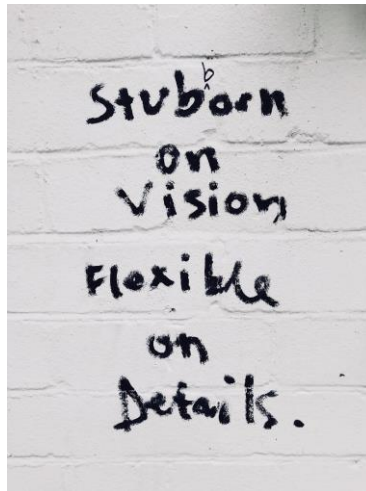 Stubborn
on
Vision,
Flexible
on
Details.